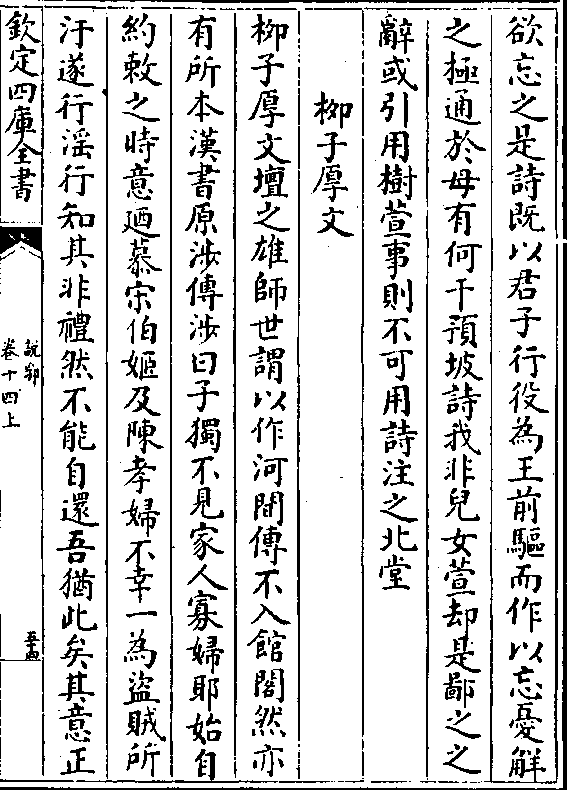 欲忘之是詩既以君子行役為王前驅而作以忘憂解
之極通於母有何干預坡詩我非兒女萱却是鄙之之
辭或引用樹萱事則不可用詩注之北堂
栁子厚文
栁子厚文壇之雄師世謂以作河間傳不入館閣然亦
有所本漢書原涉傳涉曰子獨不見家人寡婦耶始自
約敕之時意廼慕宋伯姬及陳孝婦不幸一為盜賊所
汙遂行滛行知其非禮然不能自還吾猶此矣其意正
欽定四庫全書
說郛
卷十四上
五十四